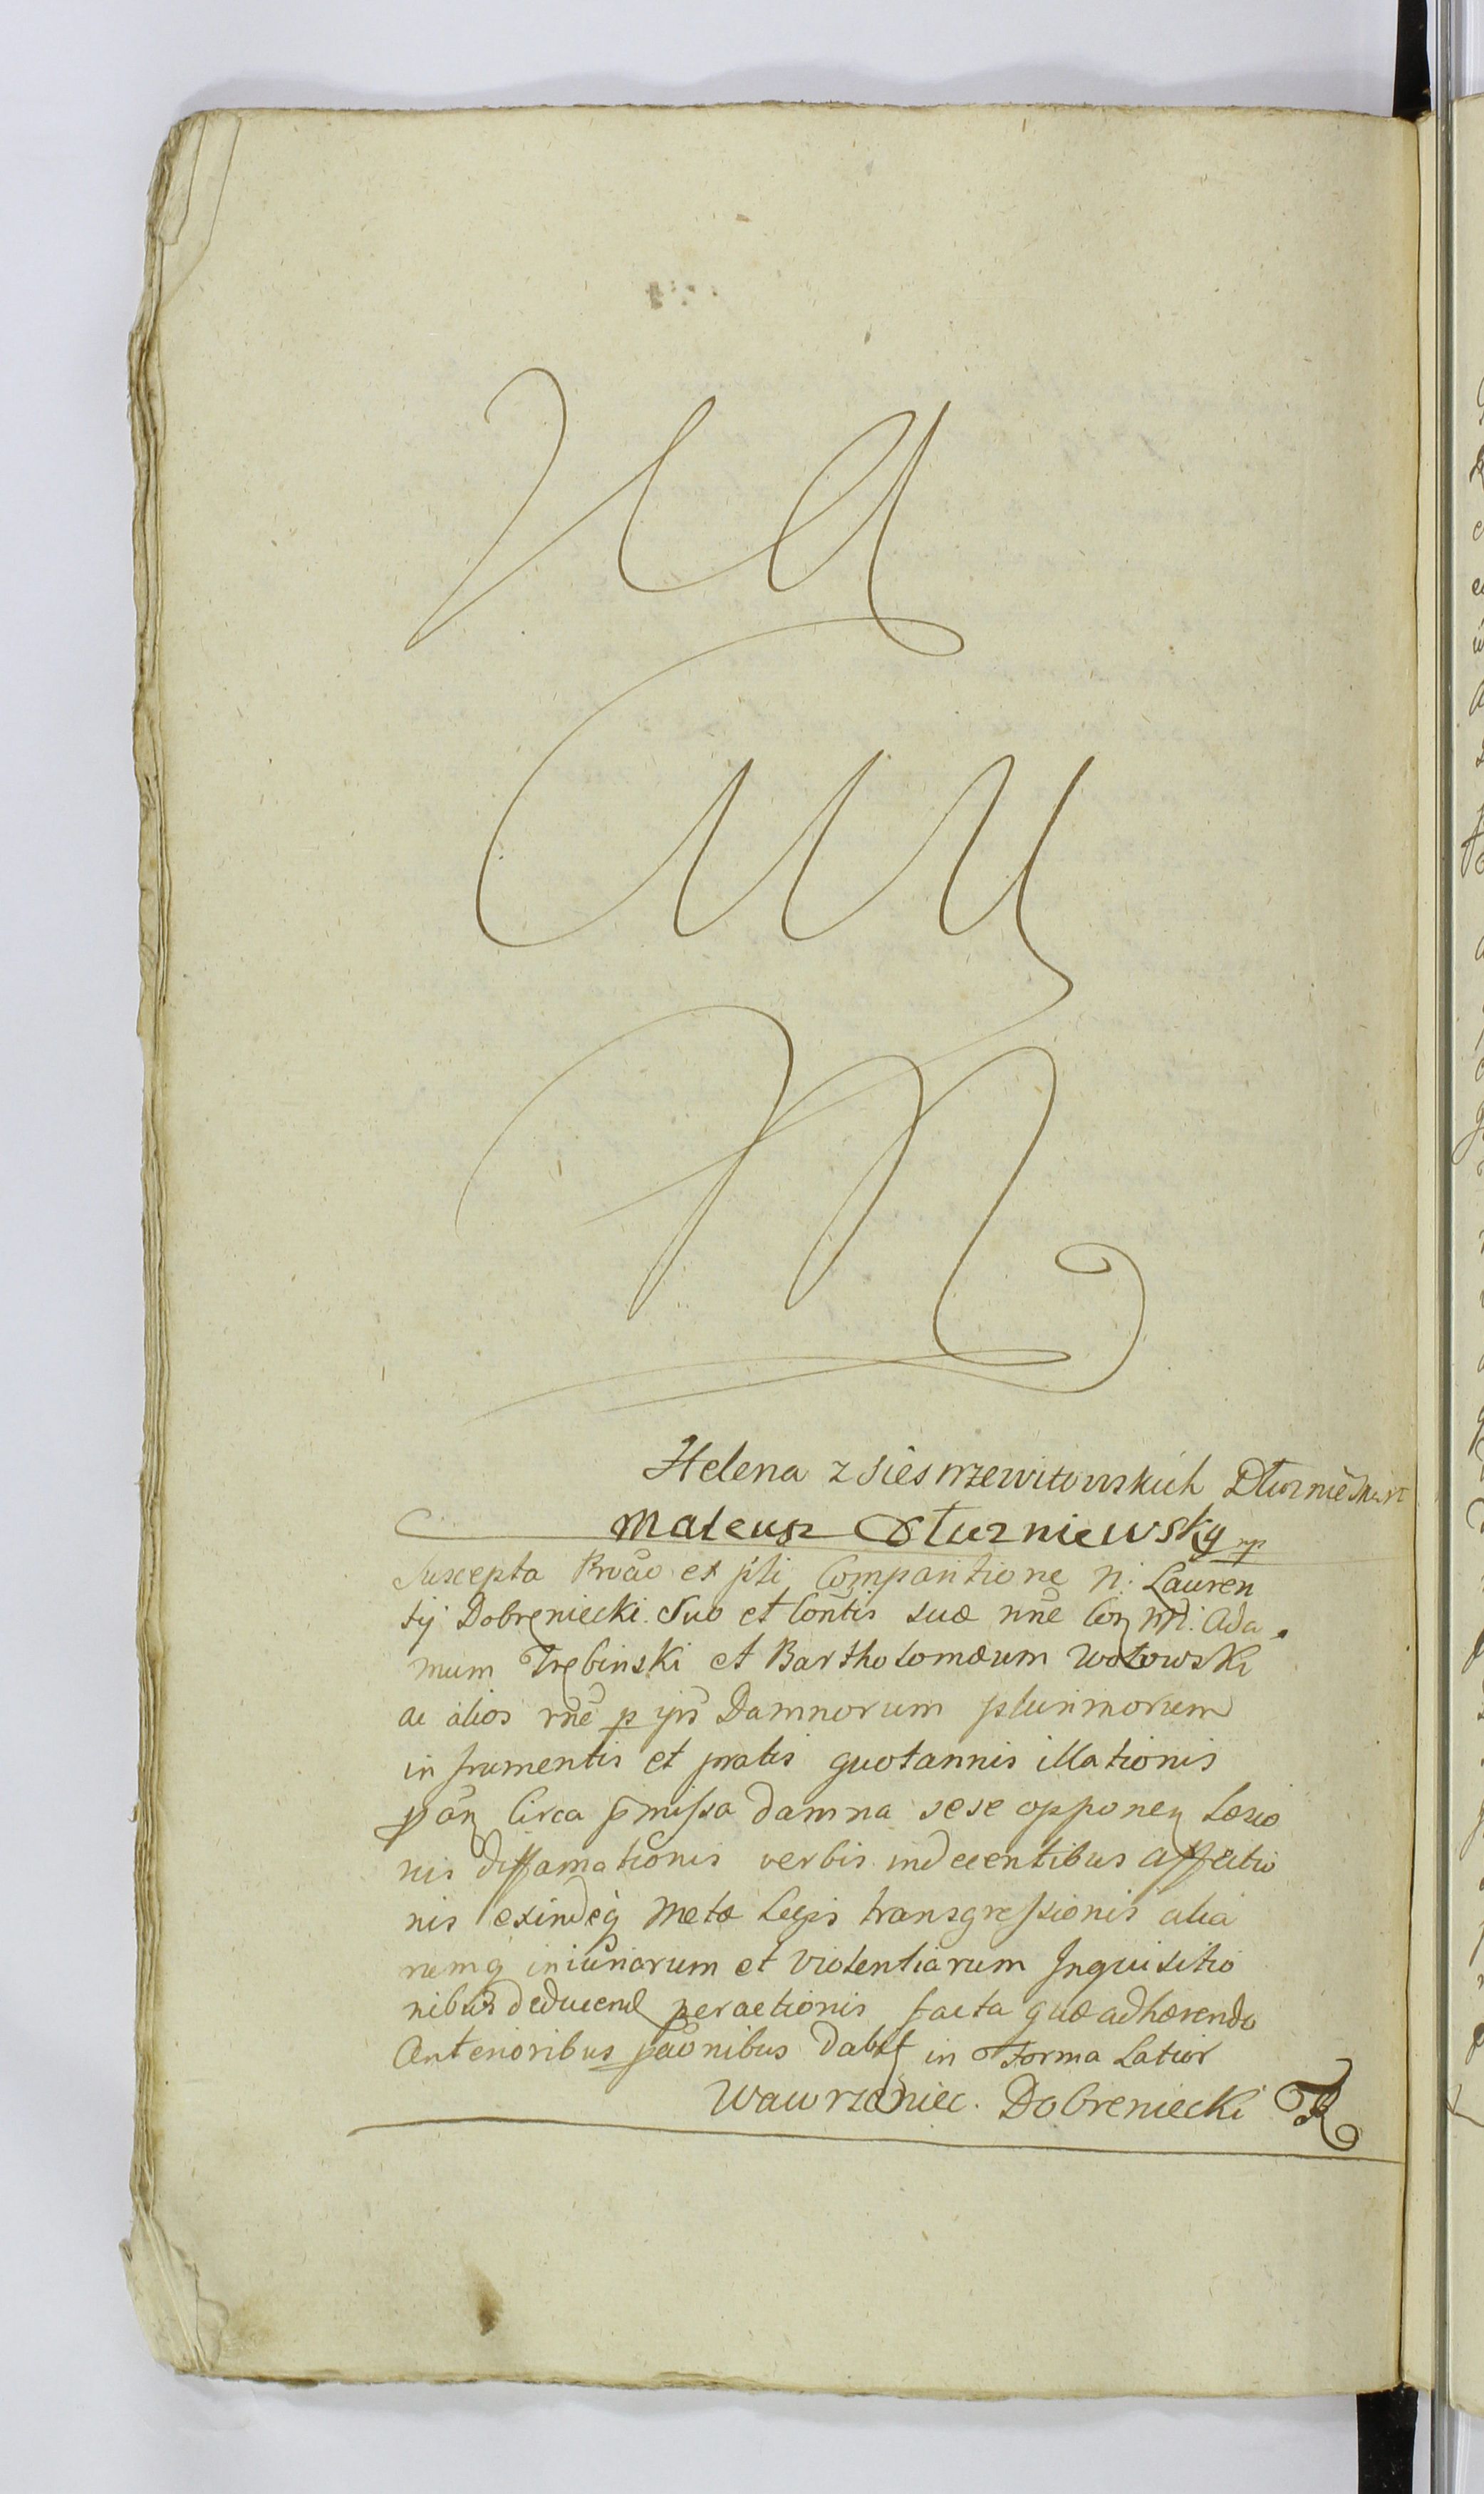 Va
cuu
m
Helena z Siesrzewitowskich Dłuzniewska
Mateusz Dłuzniewsky mp
Suscepta Prõão ex p̃ti Comparitione N: Lauren
tij Dobreniecki Suo et Cõntis suæ nñe Con NN: Ada
mum Trębinski et Bartholomæum Wołowski
ac alios rñe p ijrs Damnorum plurimorum
in frumentis et pratis quotannis illationis
Circa p̃missa damna sese opponen Læsio
nis diffamationis verbis indecentibus affectio
nis exindeq metæ Legis transgressionis alia
rumq iniuriarum et violentiarum Inquisitio
nibus deducend peractionis facta quæ adhærendo
Anterioribus p̃aõnibus dabit in Forma Latior
Wawrzeniec Dobreniecki